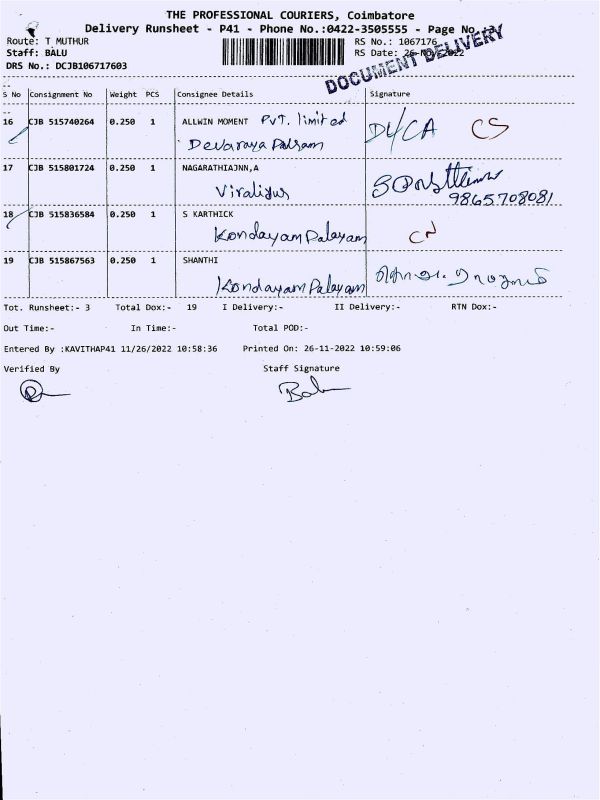 THE PROFESSIONAL COURIERS, Coimbatore
Delivery Runsheet - P41 - Phone No.:0422-3505555 - Page No.
Route: T MUTHUR
RS No.: 1067176
Staff: BALU
RS Date: 26-Nov-2022
DRS No.: DCJB106717603
DOCUMENT DELIVERY
S No Consignment No Weight PCS Consignee Details Signature
16 CJB 515740264 0.250 1 ALLWIN MOMENT PVT. limited
CS
17 CJB 515801724 0.250 1 NAGARATHIAJNN,A
9865708081
18 CJB 515836584 0.250 1 S KARTHICK
Kondayampalayam
19 CJB 515867563 0.250 1 SHANTHI
Kondayampalayam
Tot. Runsheet:- 3 Total Dox:- 19 I Delivery:- II Delivery:- RTN Dox:-
Out Time:- In Time:- Total POD:-
Entered By :KAVITHAP41 11/26/2022 10:58:36 Printed On: 26-11-2022 10:59:06
Verified By Staff Signature